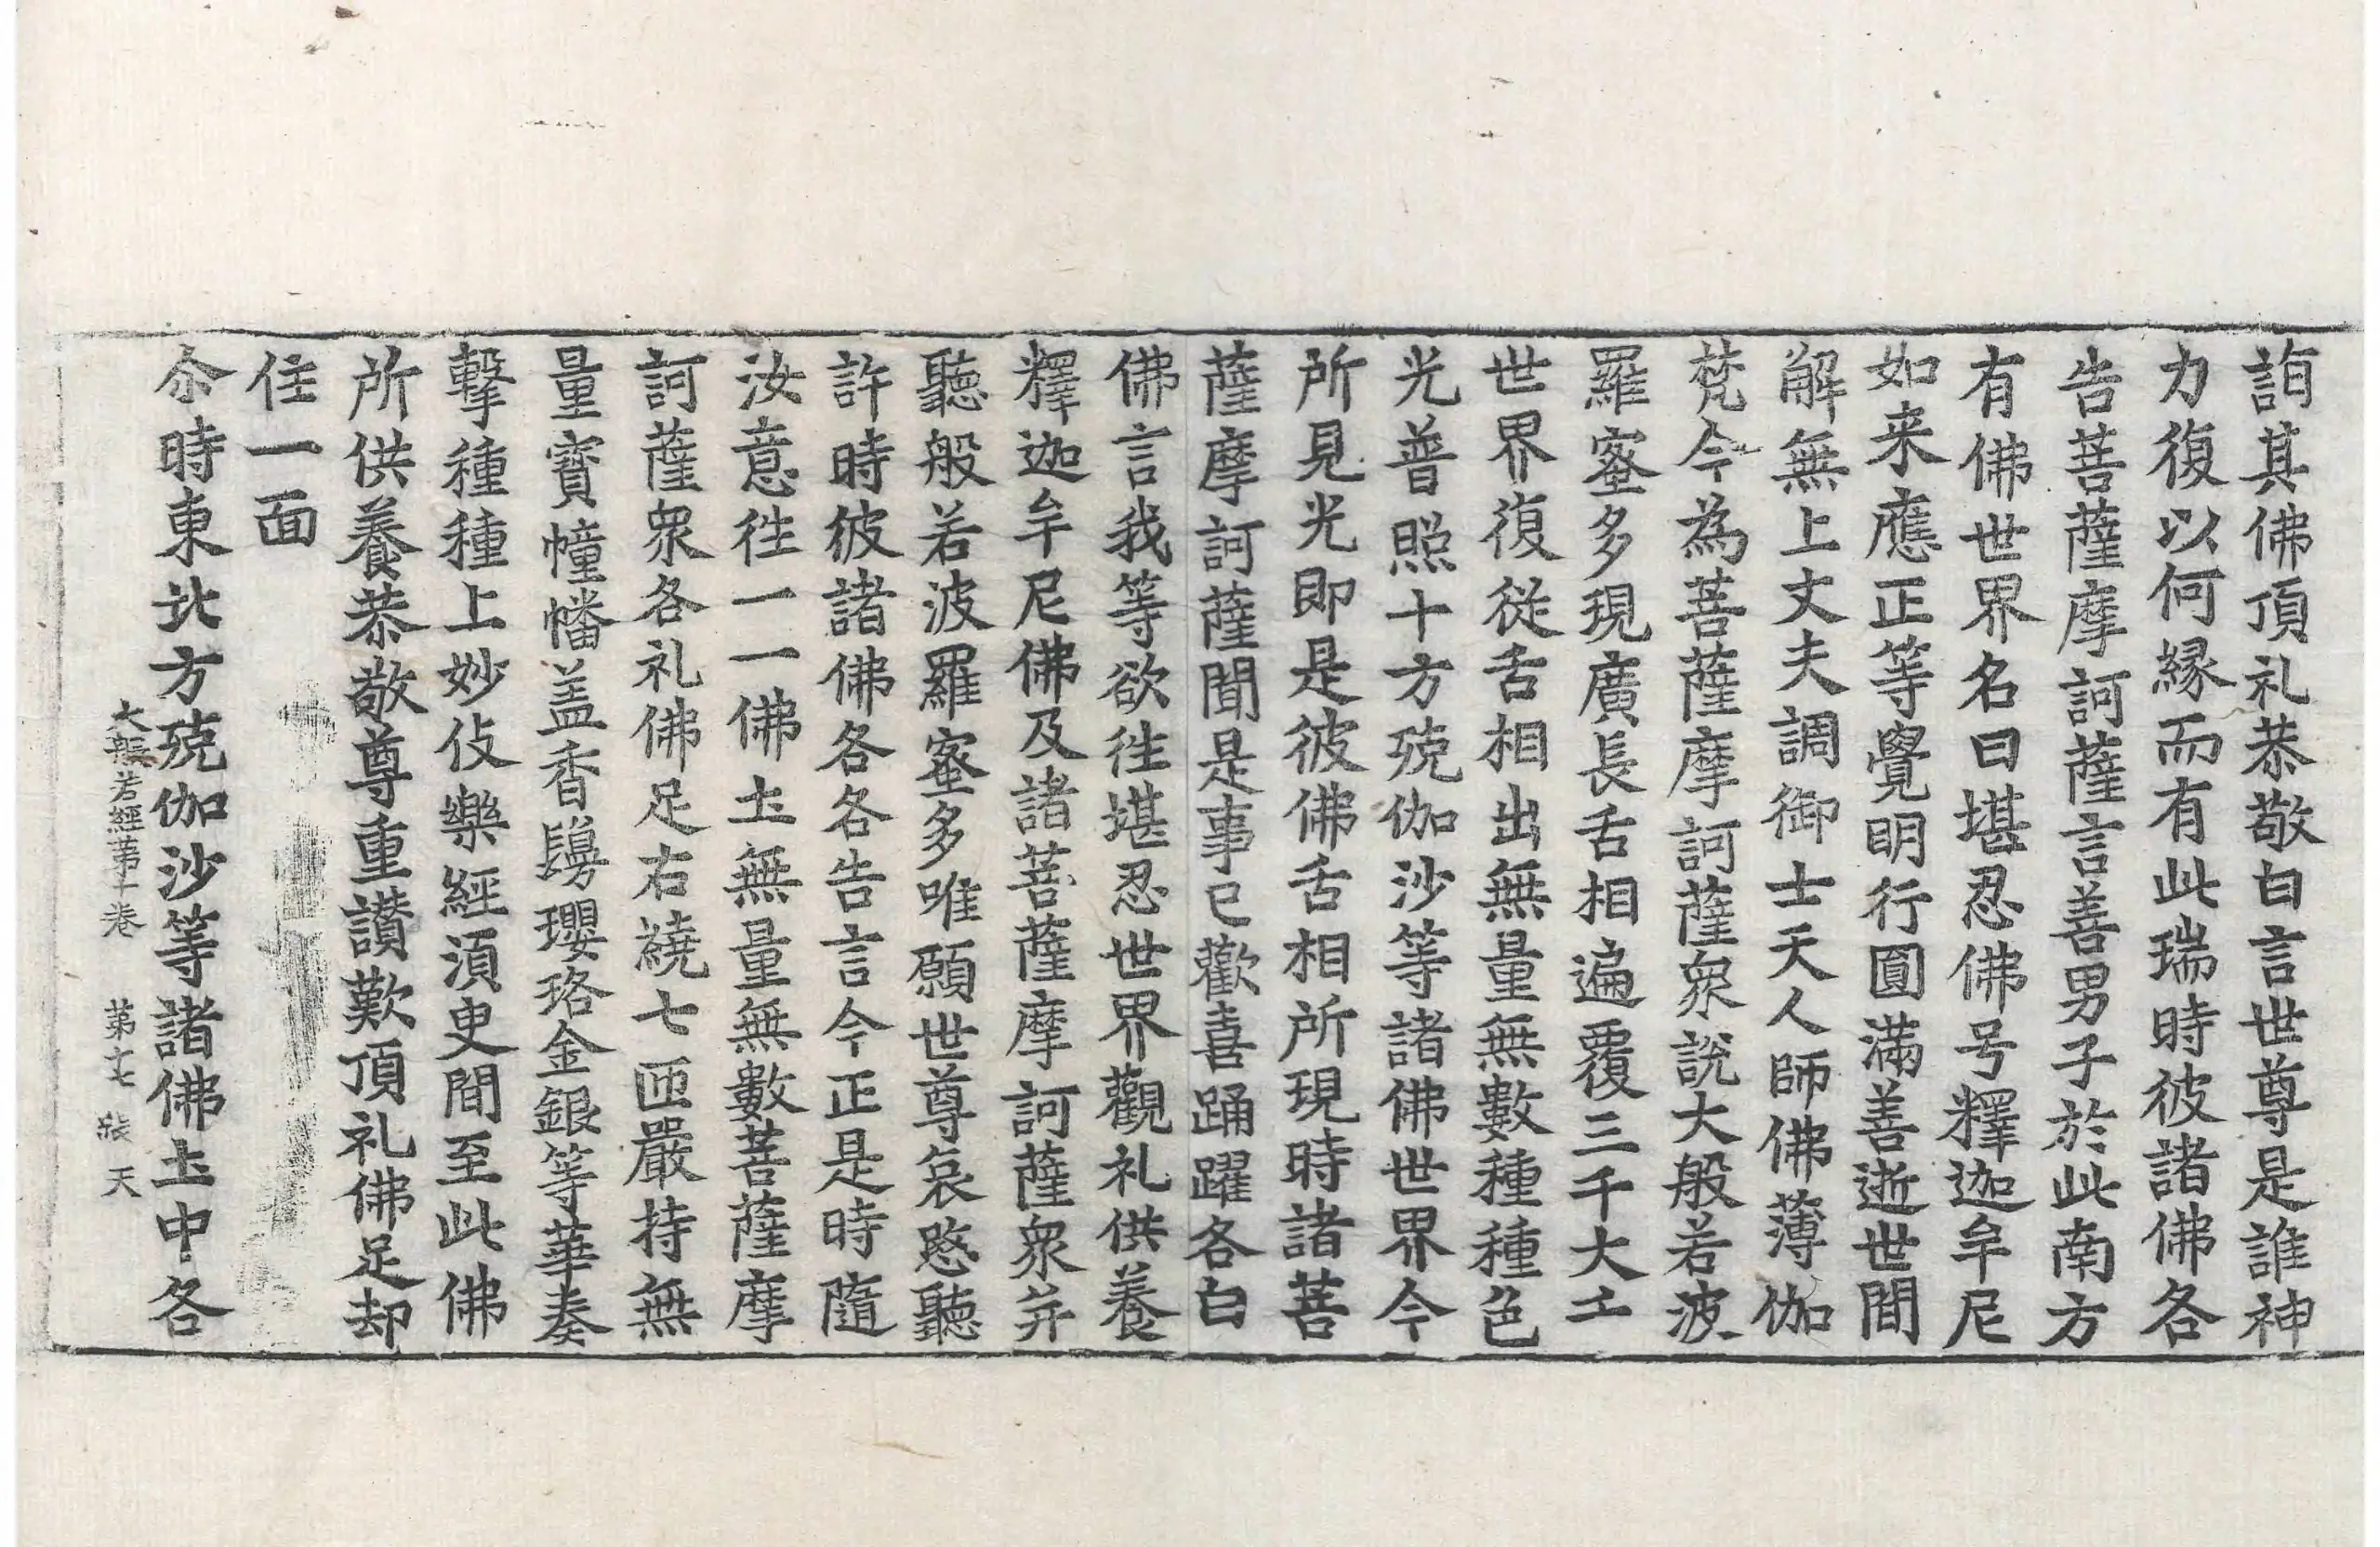 詣其佛頂礼恭敬白言世尊是誰神
力復以何縁而有此瑞時彼諸佛各
告菩薩摩訶薩言善男子於此南方
有佛世界名曰堪忍佛号釋迦牟尼
如来應正等覺明行圓滿善逝世間
解無上丈夫調御士天人師佛薄伽
梵今為菩薩摩訶薩衆說大般若波
羅蜜多現廣長舌相遍覆三千大千
世界復從舌相出無量無數種種色
光普照十方殑伽沙等諸佛世界今
所見光即是彼佛舌相所現時諸菩
薩摩訶薩聞是事已歡喜踊躍各白
佛言我等欲往堪忍世界觀礼供養
釋迦牟尼佛及諸菩薩摩訶薩衆并
聽般若波羅蜜多唯願世尊哀愍聽
許時彼諸佛各各告言今正是時隨
汝意往一一佛土無量無數菩薩摩
訶薩衆各礼佛足右繞七匝嚴持無
量寶幢幡盖香鬘瓔珞金銀等華奏
擊種種上妙伎樂經須臾間至此佛
所供養恭敬尊重讃歎頂礼佛足却
住一面
尒時東北方殑伽沙等諸佛土中各
大般若經第十卷 第七 張 天